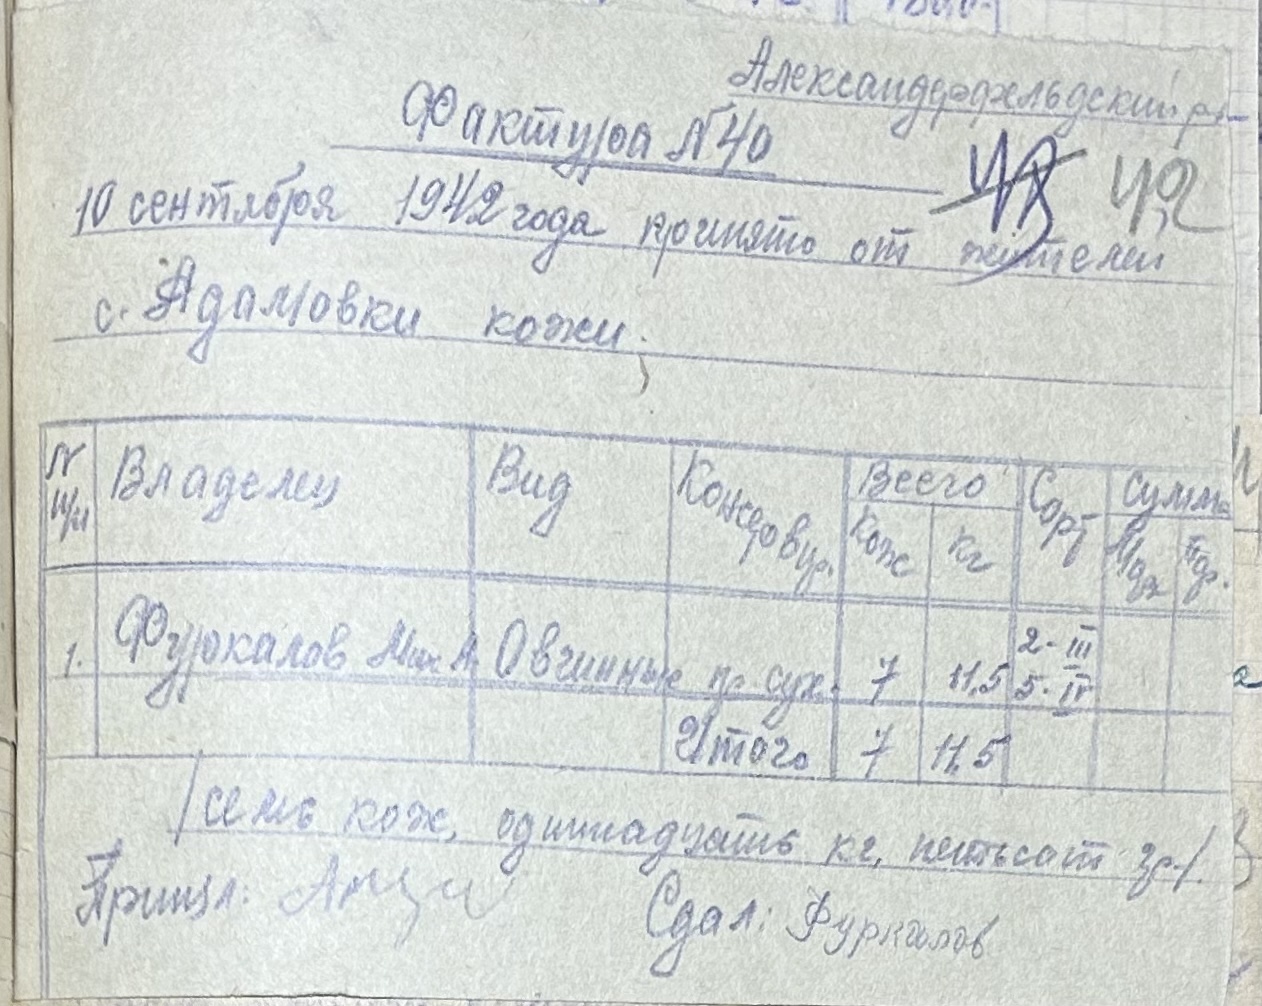 Александерфельдский р-
Фактура №40
43 42
10 сентября 1942 года принято от жителей
с. Адамовки кожи.
N п/п Владелец Вид Консервир. Всего Сорт сумма
кож кг
1. Фуркалов Мих А. Овчинные пр. сух. 7 11,5 2-III 5-IV
Итого 7 11,5
/семь кож, одиннадцать кг, пятьсот гр./
Принял:
Сдал: Фуркалов